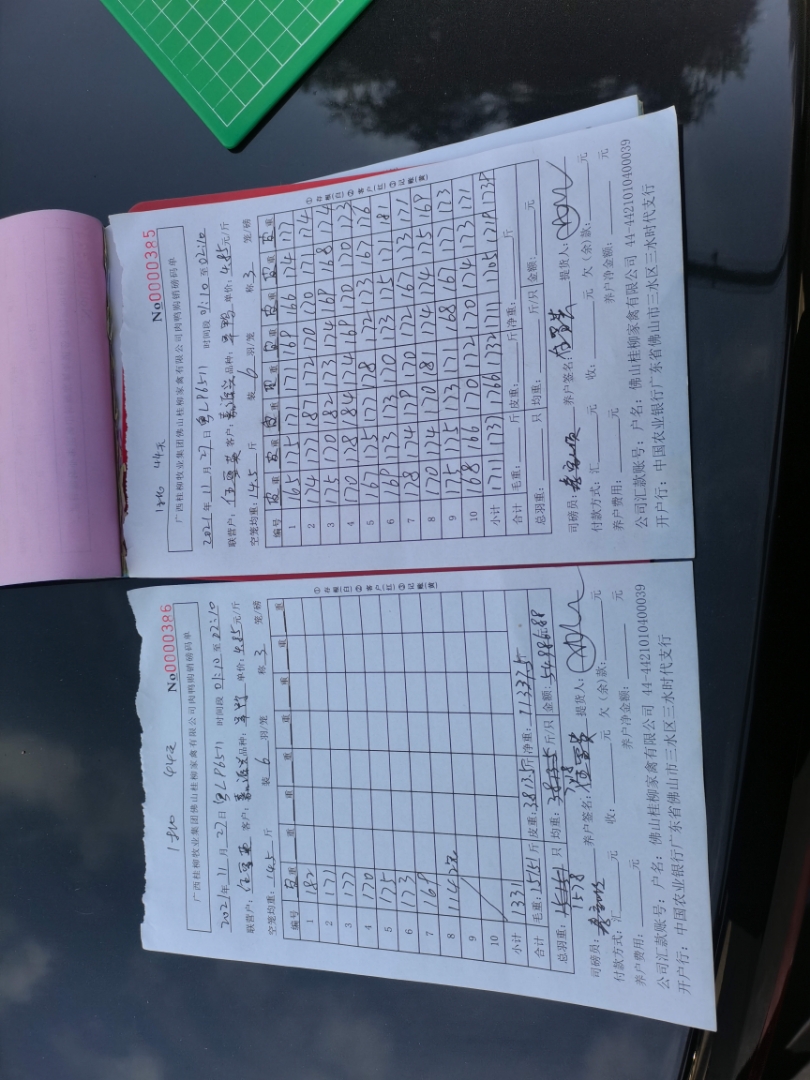 1-8栋 44天
广西桂柳牧业集团佛山桂柳家禽有限公司肉鸭购销磅码单
No 0000385
2021年11月27日 粤LP6511 时间段 01:10 至 02:10
联营户: 客户: 品种: 单价: 4.85 元/斤
空笼均重: 14.5 斤 装 6 羽/笼 称 3 笼/磅
编号 皮重 皮重 皮重 皮重 皮重 皮重 皮重 皮重
1 165 175 171 171 169 166 174 177
2 174 177 187 172 170 170 171 174
3 175 170 182 173 174 169 168 174
4 170 178 184 174 169 170 170 173
5 167 175 177 178 172 173 167 176
6 169 173 173 170 173 175 171 181
7 178 174 179 170 172 167 173 171
8 170 174 170 181 174 174 175 169
9 175 175 173 171 168 167 177 173
10 168 166 170 172 170 174 173 171
小计 1711 1737 1766 1732 1711 1705 1719 1739
合计 毛重: 斤 皮重: 斤 净重: 斤
总羽重: 只 均重: 斤/只 金额: 元
①存根(白)②客户(红)③记账(黄)
司磅员: 养户签名: 提货人:
付款方式: 汇 元 收: 元 欠(余)款: 元
养户费用: 元 养户净金额: 元
公司汇款账号: 户名: 佛山桂柳家禽有限公司 44-4421010400039
开户行: 中国农业银行广东省佛山市三水区三水时代支行
1-8栋 44天
广西桂柳牧业集团佛山桂柳家禽有限公司肉鸭购销磅码单
No 0000386
2021年11月27日 粤LP6511 时间段 01:10 至 02:10
联营户: 客户: 品种: 单价: 4.85 元/斤
空笼均重: 14.5 斤 装 6 羽/笼 称 3 笼/磅
编号 皮重 重 重 重 重 重 重 重
1 182
2 171
3 177
4 170
5 175
6 173
7 169
8 114 2只
9
10
小计 1331
合计 毛重: 15151 斤 皮重: 3813.5 斤 净重: 11337.5
总羽重: 1578 只 均重: 斤/只 金额: 54986.88
①存根(白)②客户(红)③记账(黄)
司磅员: 养户签名: 提货人:
付款方式: 汇 元 收: 元 欠(余)款: 元
养户费用: 元 养户净金额: 元
公司汇款账号: 户名: 佛山桂柳家禽有限公司 44-4421010400039
开户行: 中国农业银行广东省佛山市三水区三水时代支行